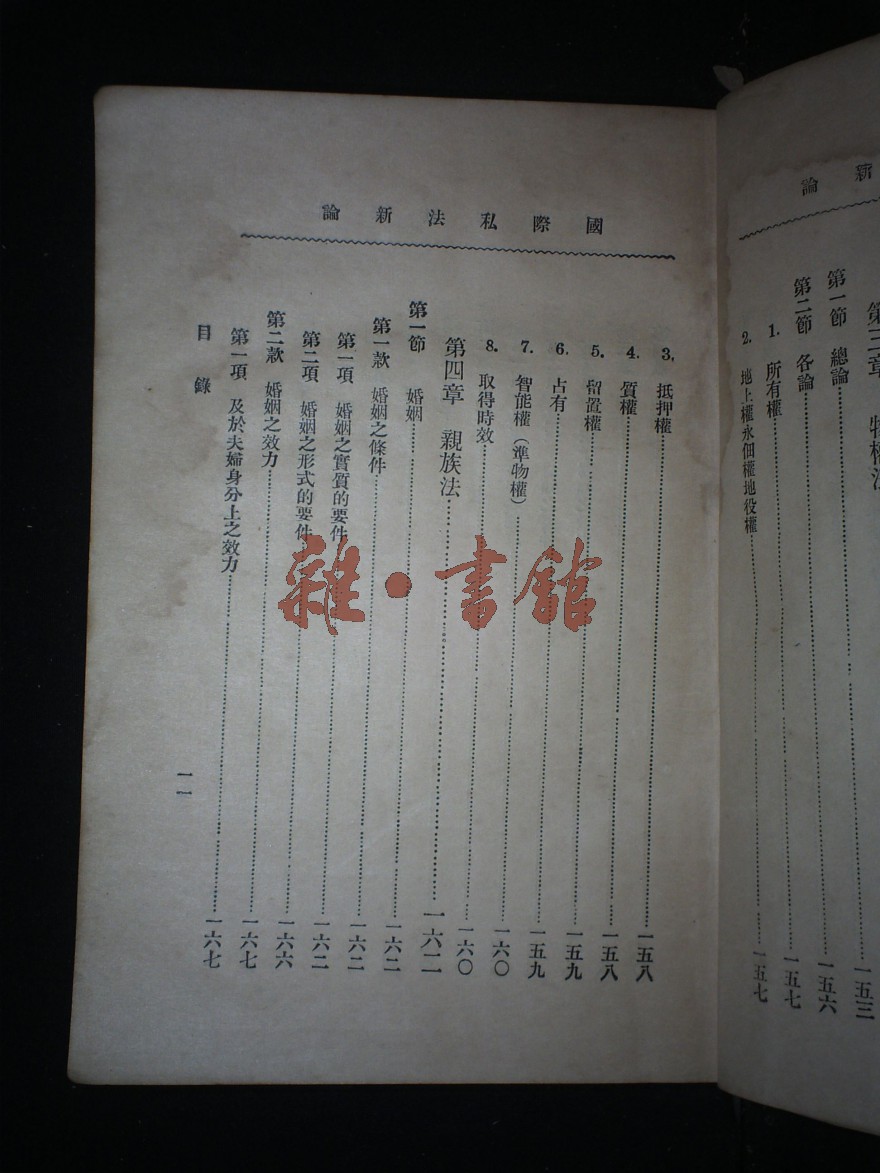 新論
第三章 物權法
第一節 總論……一五三
第二節 各論……一五六
1. 所有權……一五七
2. 地上權永佃權地役權……一五七
國際私法新論
3. 抵押權……一五八
4. 質權……一五八
5. 留置權……一五九
6. 占有……一五九
7. 智能權(準物權)……一六〇
8. 取得時效……一六〇
第四章 親族法……一六二
第一節 婚姻……一六二
第一款 婚姻之條件……一六二
第一項 婚姻之實質的要件……一六二
第二項 婚姻之形式的要件……一六六
第二款 婚姻之效力……一六七
第一項 及於夫婦身分上之效力……一六七
目錄
一一
雜·書館